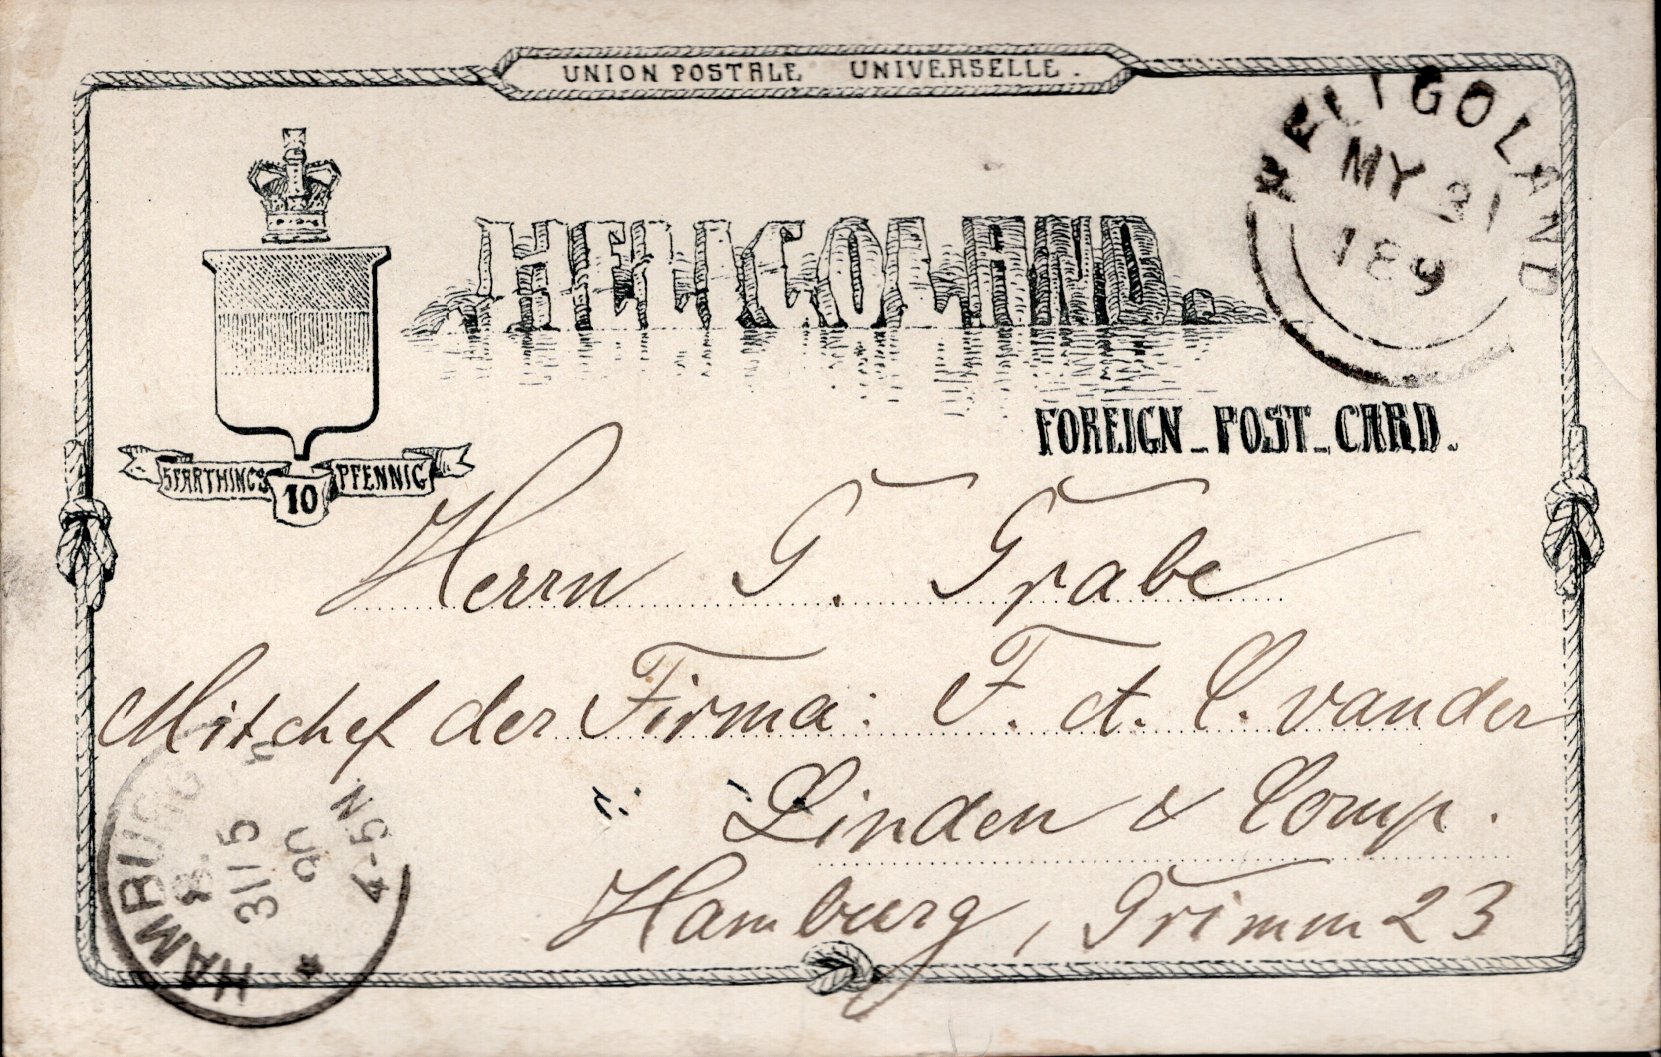 UNION POSTALE UNIVERSELLE.
HELIGOLAND
MY 31
189
HELIGOLAND
FOREIGN_POST_CARD.
5 FARTHINGS 10 PFENNIG
Herrn G. Grabe
Mitchef der Firma: F. et. C. van der
Linden & Comp.
Hamburg, Grimm 23
HAMBURG
31/5
90
4-5N